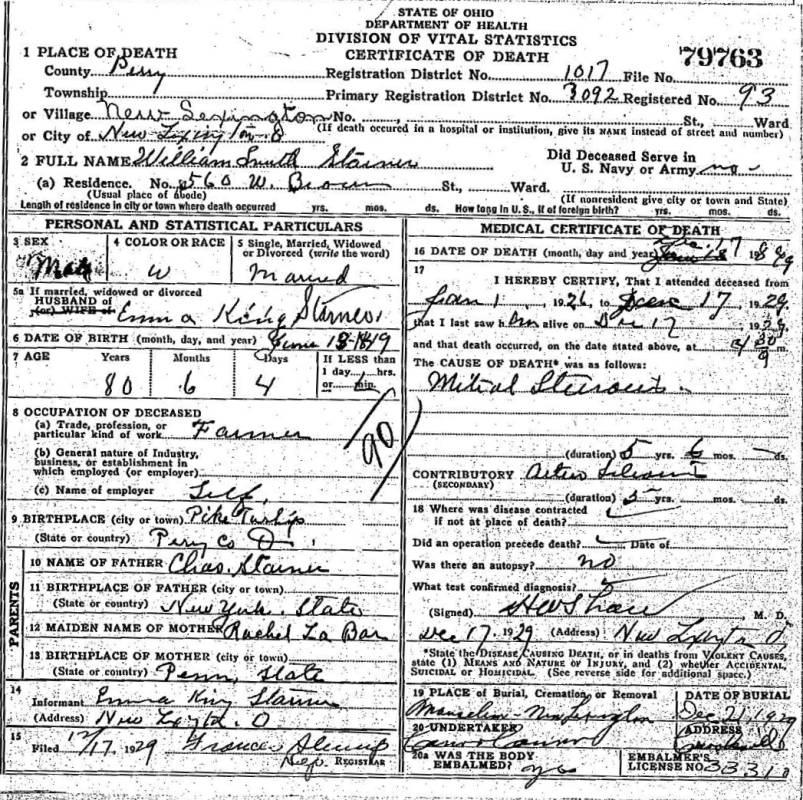 STATE OF OHIO
DEPARTMENT OF HEALTH
DIVISION OF VITAL STATISTICS
CERTIFICATE OF DEATH
79763
1 PLACE OF DEATH
County Perry Registration District No. 1017 File No.
Township Primary Registration District No. 3092 Registered No. 93
or Village New Lexington No. St., Ward
or City of New Lexington O (If death occured in a hospital or institution, give its NAME instead of street and number)
2 FULL NAME William Smith Starner
Did Deceased Serve in U. S. Navy or Army no
(a) Residence. No. 560 W. Brown St., Ward.
(Usual place of abode) (If nonresident give city or town and State)
Length of residence in city or town where death occurred yrs. mos. ds. How long in U. S., if of foreign birth? yrs. mos. ds.
PERSONAL AND STATISTICAL PARTICULARS
3 SEX
Male
4 COLOR OR RACE
W
5 Single, Married, Widowed or Divorced (write the word)
Married
5a If married, widowed or divorced
HUSBAND of
(or) WIFE of Emma King Starner
6 DATE OF BIRTH (month, day, and year) June 13-1849
7 AGE Years Months Days If LESS than
1 day hrs.
or min.
80 6 4
90
8 OCCUPATION OF DECEASED
(a) Trade, profession, or
particular kind of work Farmer
(b) General nature of Industry,
business, or establishment in
which employed (or employer)
(c) Name of employer Self
9 BIRTHPLACE (city or town) Pike Twshp
(State or country) Perry Co O
PARENTS
10 NAME OF FATHER Chas. Starner
11 BIRTHPLACE OF FATHER (city or town)
(State or country) New York State
12 MAIDEN NAME OF MOTHER Rachel La Bar
13 BIRTHPLACE OF MOTHER (city or town)
(State or country) Penn, State
14
Informant Emma King Starner
(Address) New Lexgtn. O
15
Filed 12/17, 1929 Frances
Dep. REGISTRAR
MEDICAL CERTIFICATE OF DEATH
16 DATE OF DEATH (month, day and year) Dec. 17 1929
17
I HEREBY CERTIFY, That I attended deceased from
Jan 1, 1926, to Dec 17, 1929,
that I last saw him alive on Dec 17, 1929,
and that death occurred, on the date stated above, at m.
The CAUSE OF DEATH* was as follows:
Mitral Stenosis
(duration) 5 yrs. 6 mos. ds.
CONTRIBUTORY Arterio Sclerosis
(SECONDARY)
(duration) 5 yrs. mos. ds.
18 Where was disease contracted
if not at place of death?
Did an operation precede death? Date of
Was there an autopsy? no
What test confirmed diagnosis?
(Signed) Shaw, M. D.
Dec 17. 1929 (Address) New Lexgtn O
*State the DISEASE CAUSING DEATH, or in deaths from VIOLENT CAUSES,
state (1) MEANS AND NATURE OF INJURY, and (2) whether ACCIDENTAL,
SUICIDAL or HOMICIDAL. (See reverse side for additional space.)
19 PLACE of Burial, Cremation, or Removal
New Lexington
DATE OF BURIAL
Dec. 21, 1929
20 UNDERTAKER
ADDRESS
20a WAS THE BODY
EMBALMED? yes
EMBALMER'S
LICENSE NO. 3331